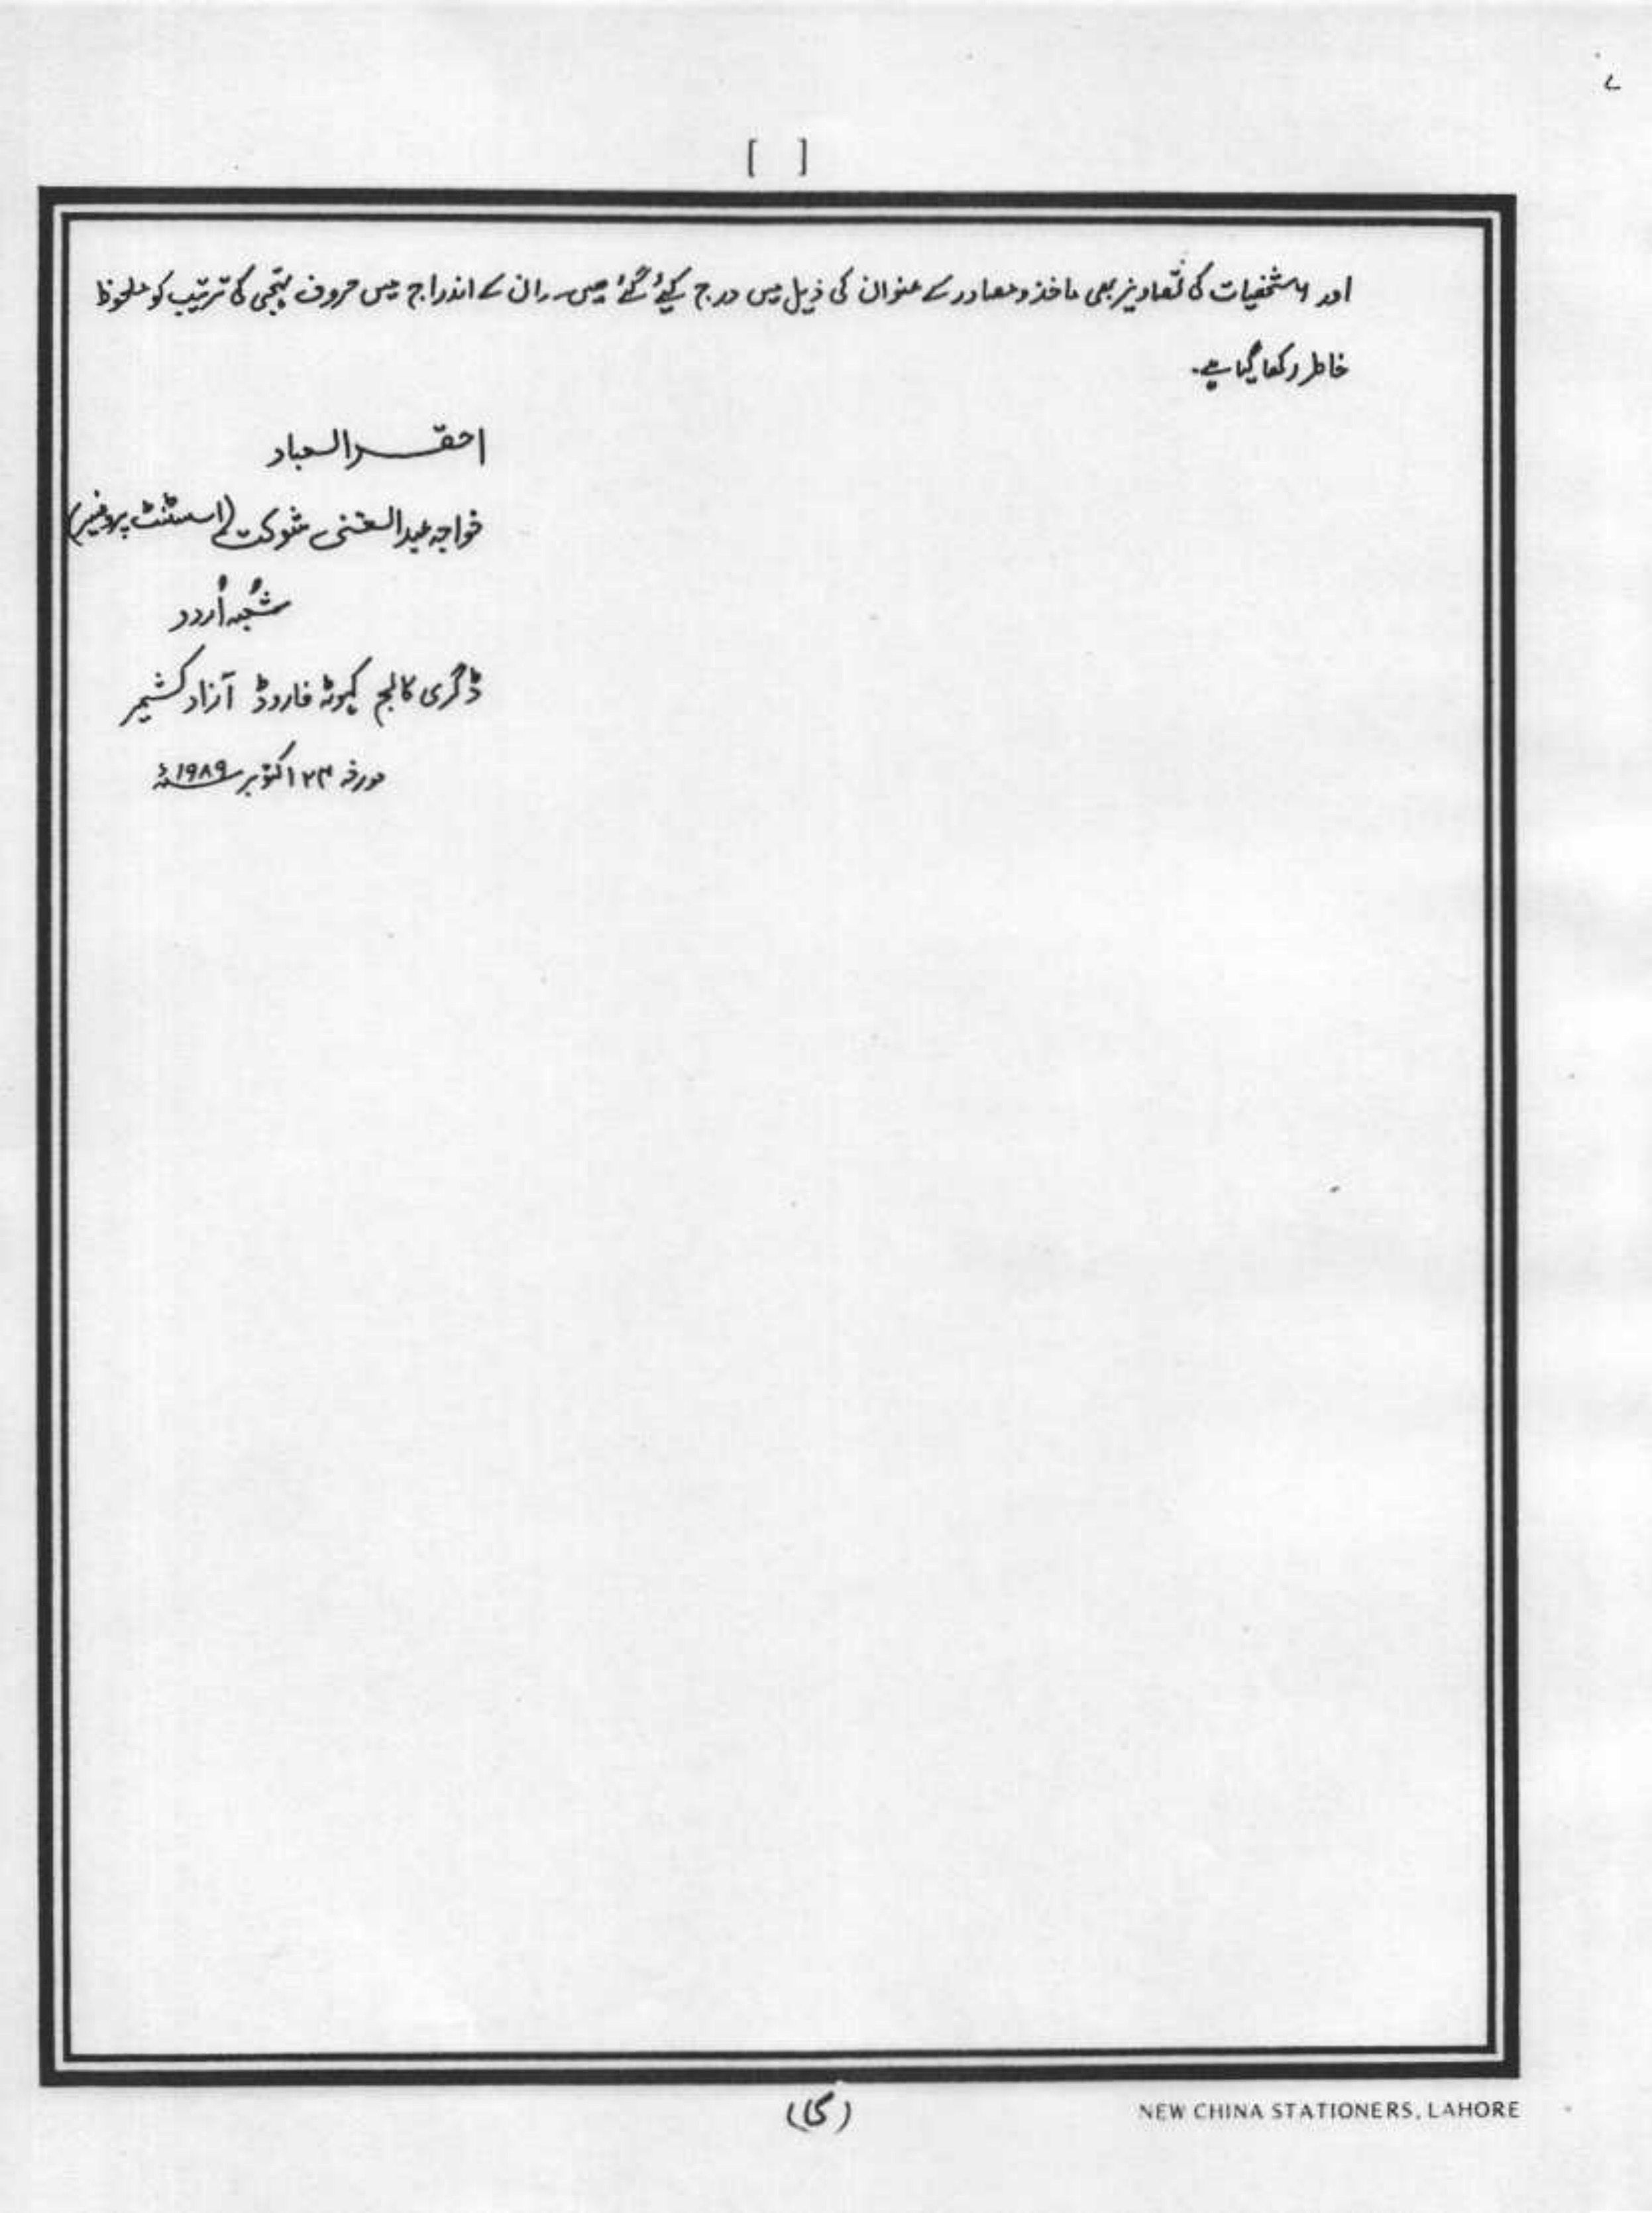 ۷
[ ]
اور ۶ شخصیات کی تصاویز بھی ماخذ و مصادر کے عنوان کی ذیل میں درج کیئے گئے ہیں۔ ان کے اندراج میں حروف تہجی کی ترتیب کو ملحوظ
خاطر رکھا گیا ہے۔
احقر العباد
خواجہ عبدالغنی شوکت (اسسٹنٹ پروفیسر)
شعبہ اُردو
ڈگری کالج کہوٹہ فارورڈ آزاد کشمیر
مورخہ ۲۳ اکتوبر ۱۹۸۹ء
NEW CHINA STATIONERS, LAHORE